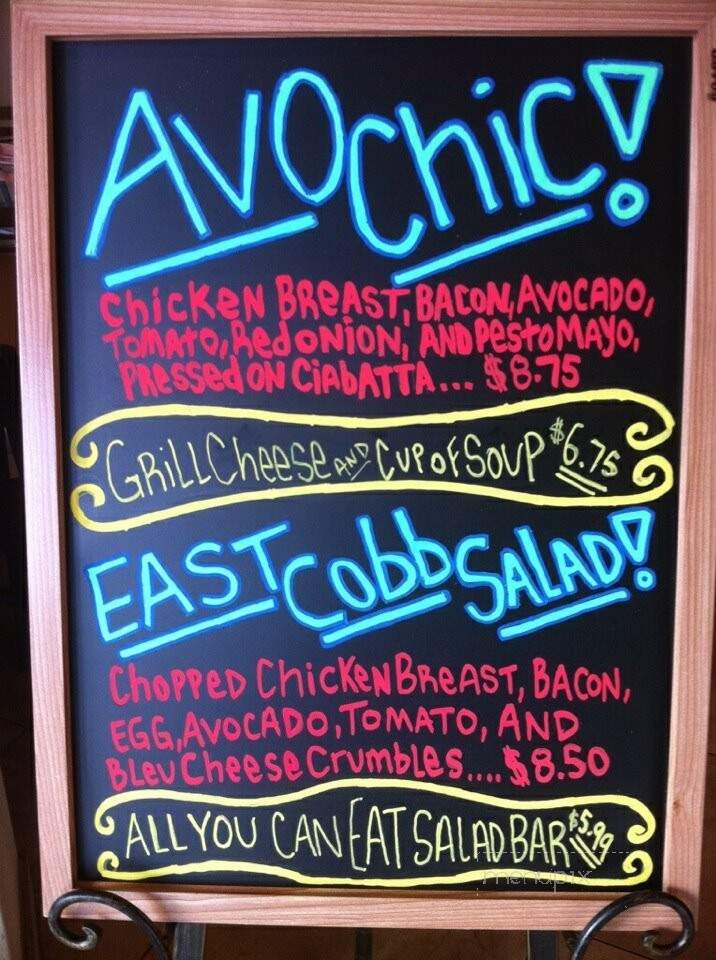 AVOCHIC!
CHICKEN BREAST, BACON, AVOCADO,
TOMATO, Red ONION, AND PESTO MAYO,
PRESSED ON CIABATTA... $8.75
GRILL CHEESE AND CUP OF SOUP $6.75
EAST COBB SALAD!
CHOPPED CHICKEN BREAST, BACON,
EGG, AVOCADO, TOMATO, AND
BLEU CHEESE CRUMBLES..... $8.50
ALL YOU CAN EAT SALAD BAR $5.99
menupix